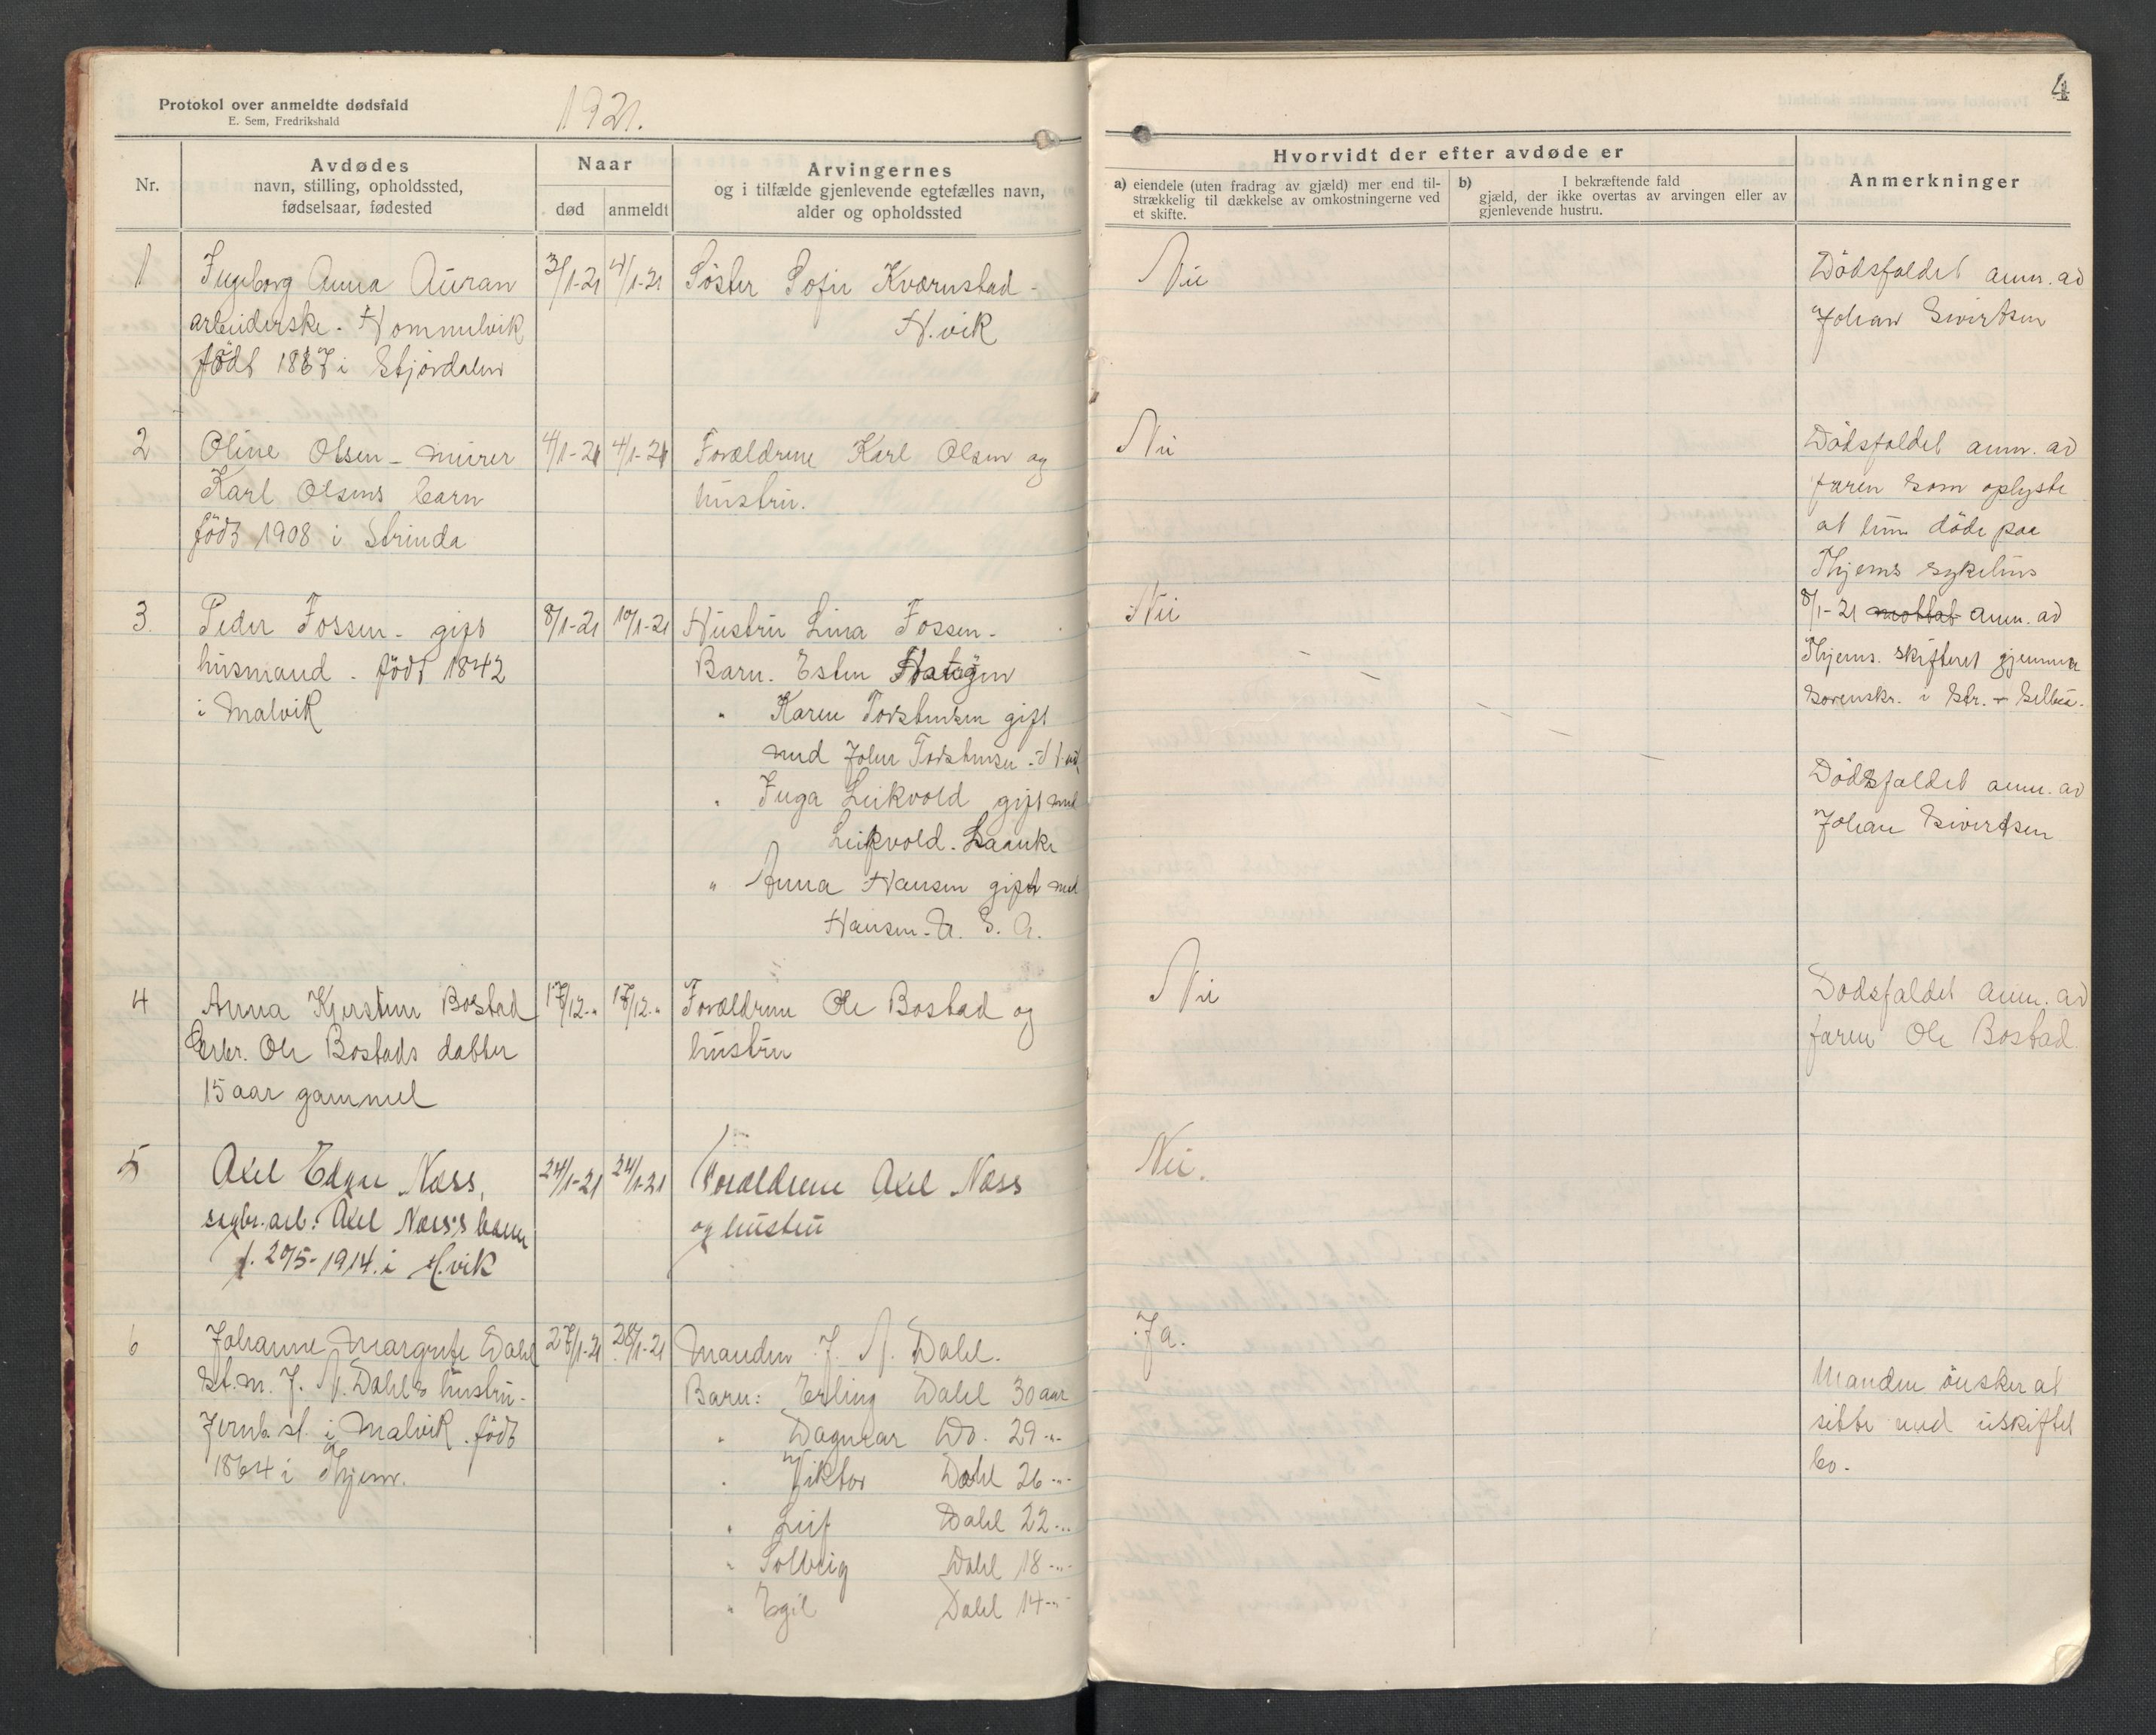 Protokol over anmeldte dødsfald
E. Sem, Fredrikshald
1921.
4
Nr.
Avdødes
navn, stilling, opholdssted,
fødselsaar, fødested
Naar
død
anmeldt
Arvingernes
og i tilfælde gjenlevende egtefælles navn,
alder og opholdssted
Hvorvidt der efter avdøde er
a) eiendele (uten fradrag av gjæld) mer end til-
strækkelig til dækkelse av omkostningerne ved
et skifte.
b) I bekræftende fald
gjæld, der ikke overtas av arvingen eller av
gjenlevende hustru.
Anmerkninger
1
Ingeborg Anna Auran
arbeiderske. Hommelvik
født 1867 i Stjørdalen
3/1-21
4/1-21
Søster Sofie Kværnstad -
H.vik
Nei
Dødsfaldet anm. av
Johan Sivertsen
2
Oline Olsen - murer
Karl Olsens barn
født 1908 i Strinda
4/1-21
4/1-21
Forældrene Karl Olsen og
hustru.
Nei
Dødsfaldet anm. av
faren som oplyste
at hun døde paa
Thjems sykehus
3.
Peder Fossen - gift
husmand. født 1842
i Malvik
8/1-21
10/1-21
Hustru Lina Fossen -
Barn. Esten
" Karen Torstensen gift
med John Torstensen
" Inga Leikvold gift med
Leikvold. Laanke
" Anna Hansen gift med
Hansen. U. S. A.
Nei
8/1-21 mottat anm. av
Thjems. skifteret gjennem
Sorenskr. i Str. + Selbu.
Dødsfaldet anm. av
Johan Sivertsen
4
Anna Kjerstine Bostad
Gerbr. Ole Bostads datter
15 aar gammel
17/12-"
18/12-"
Forældrene Ole Bostad og
hustru
Nei
Dødsfaldet anm. av
faren Ole Bostad.
5
Axel Edgar Næss,
sagbr.arb. Axel Næss's barn
f. 20/5-1914. i H.vik
24/1-21
24/1-21
Forældrene Axel Næss
og hustru
Nei.
6
Johanne Margrete Dahl
St.m. J. N. Dahls hustru.
Jernb.st. i Malvik. født
1864 i Thjem.
27/1-21
28/1-21
Manden J. N. Dahl.
Barn: Erling Dahl 30 aar
" Dagmar Do. 29 -"-
" Viktor Dahl 26 -"-
" Leif Dahl 22 -"-
" Solveig Dahl 18 -"-
" Egil Dahl 14 -"-
Ja.
Manden ønsker at
sitte med uskiftet
bo.